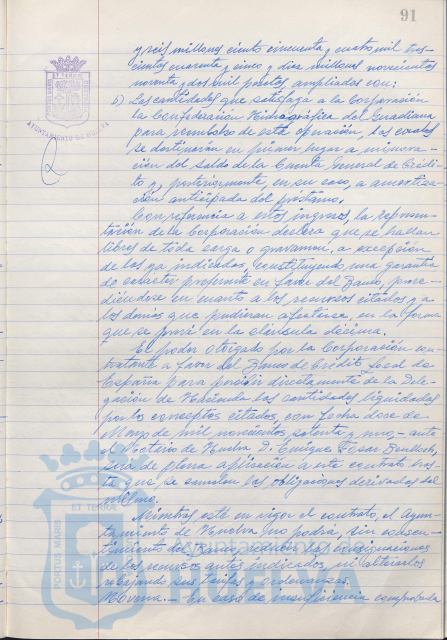 91
y seis millones ciento cincuenta y cuatro mil tres-
cientos cuarenta y cinco y diez millones novecientos
noventa y dos mil pesetas ampliados con:
b) Las cantidades que satisfaga a la Corporación
la Confederación Hidrográfica del Guadiana
para reembolso de esta operación, las cuales
se destinarán en primer lugar a minora-
ción del saldo de la Cuenta General de Crédi-
to y, posteriormente, en su caso, a amortiza-
ción anticipada del préstamo.
Con referencia a estos ingresos, la represen-
tación de la Corporación declara que se hallan
libres de toda carga o gravamen, a excepción
de los ya indicados, constituyendo una garantía
de carácter preferente en favor del Banco, proce-
diéndose en cuanto a los recursos citados y a
los demás que pudieran afectarse, en la forma
que se prevé en la cláusula décima.
El poder otorgado por la Corporación con-
tratante a favor del Banco de Crédito Local de
España para percibir directamente de la Dele-
gación de Hacienda las cantidades liquidadas
por los conceptos citados, con fecha doce de
Mayo de mil novecientos setenta y uno, ante
el Notario de Huelva D. Enrique
será de plena aplicación a este contrato has-
ta que se cancelen las obligaciones derivadas del
mismo.
Mientras esté en vigor el contrato, el Ayun-
tamiento de Huelva no podrá, sin consen-
timiento del Banco, reducir las consignaciones
de los recursos antes indicados, ni alterarlos
rebajando sus tarifas y ordenanzas.
Novena.- En caso de insuficiencia comprobada
AYUNTAMIENTO DE HUELVA
ET TERRÆ
PORTUS MARIS
HUELVA